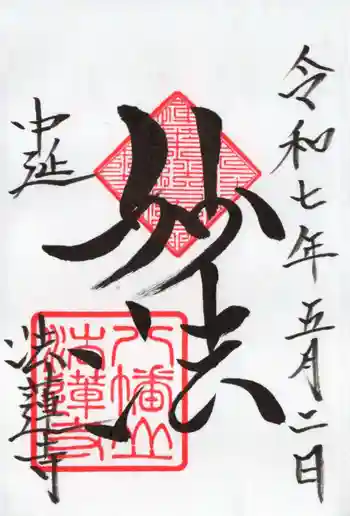 令和七年五月二日
妙法
中延
法蓮寺
八幡山
法華寺